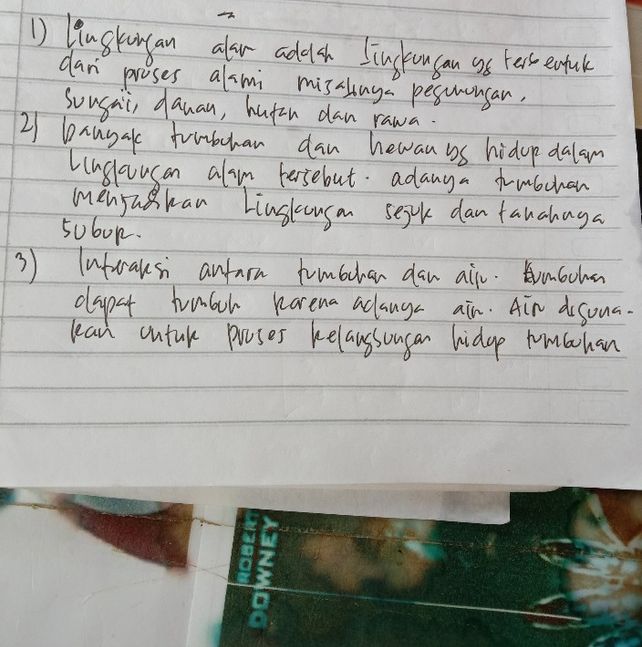 1) Lingkungan alam adalah lingkungan yg terbentuk
dari proses alami misalnya pegunungan,
sungai, danau, hutan dan rawa.
2) banyak tumbuhan dan hewan yg hidup dalam
Lingkungan alam tersebut. adanya tumbuhan
menjadikan Lingkungan sejuk dan tanahnya
subur.
3) Interaksi antara tumbuhan dan air. tumbuhan
dapat tumbuh karena adanya air. Air diguna-
kan untuk proses kelangsungan hidup tumbuhan
ROBERT
DOWNEY